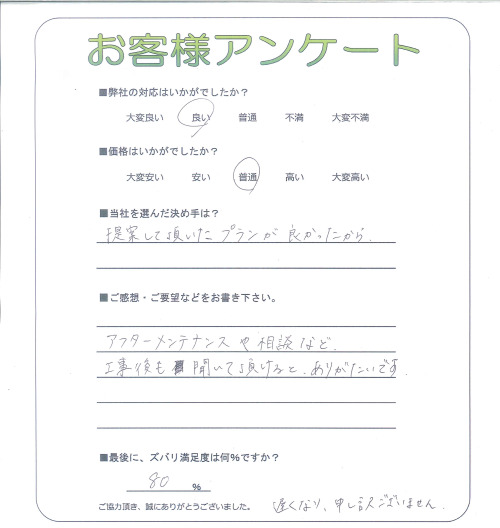 お客様アンケート
■弊社の対応はいかがでしたか？
大変良い 良い 普通 不満 大変不満
■価格はいかがでしたか？
大変安い 安い 普通 高い 大変高い
■当社を選んだ決め手は？
提案して頂いたプランが良かったから.
■ご感想・ご要望などをお書き下さい。
アフターメンテナンスや相談など.
工事後も聞いて頂けると、ありがたいです.
■最後に、ズバリ満足度は何%ですか？
80 %
ご協力頂き、誠にありがとうございました。 遅くなり、申し訳ございません.